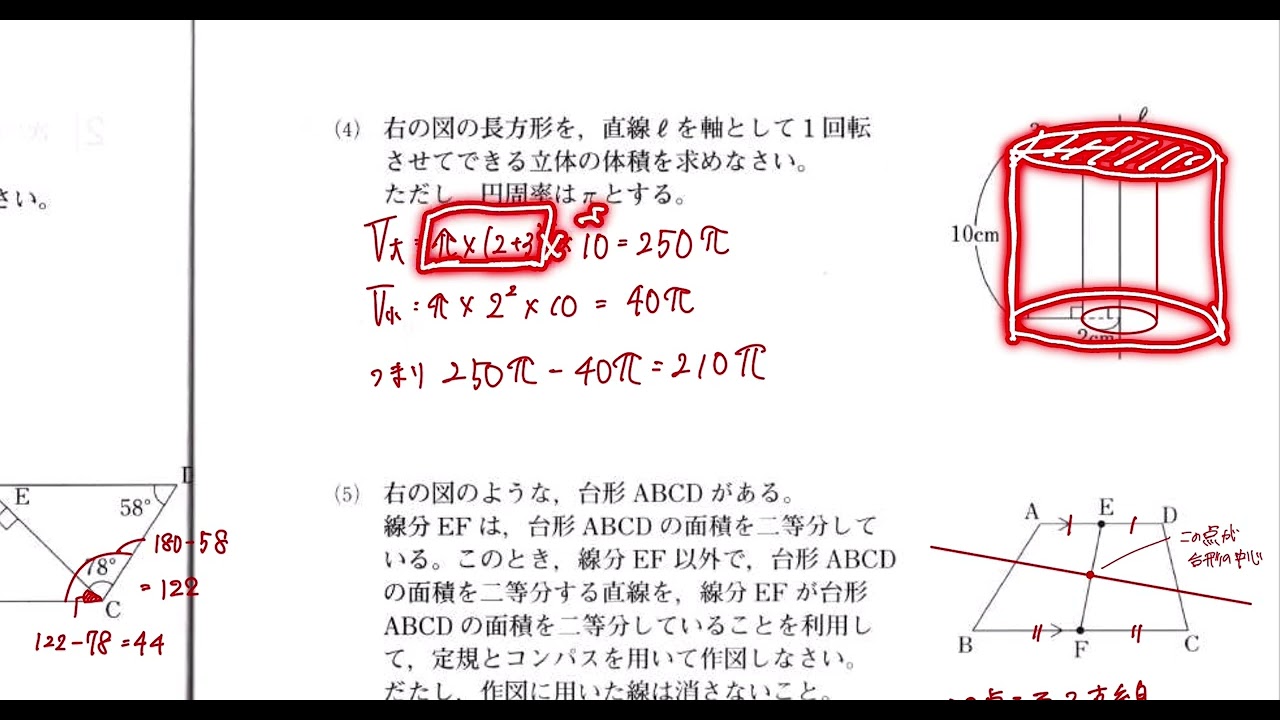 (4) 右の図の長方形を，直線ℓを軸として1回転
させてできる立体の体積を求めなさい。
ただし，円周率はπとする。
V大=π×(2+3)²×10=250π
V小=π×2²×10=40π
つまり 250π-40π=210π
ℓ
10cm
2cm
さい。
E
58°
78°
C
180-58
=122
122-78=44
(5) 右の図のような，台形ABCDがある。
線分EFは，台形ABCDの面積を二等分して
いる。このとき，線分EF以外で，台形ABCD
の面積を二等分する直線を，線分EFが台形
ABCDの面積を二等分していることを利用し
て，定規とコンパスを用いて作図しなさい。
ただし，作図に用いた線は消さないこと。
A
E
D
この点が
台形の中心
B
F
C